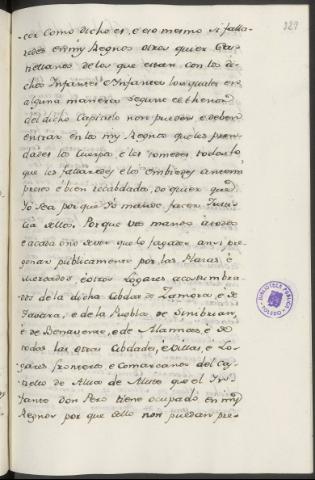 329
cer como dicho es, e eso mesmo si falla-
redes en mis Regnos otros quier Cas-
tellanos de los que estan con los di-
chos Infantes e Infanta los quales en
alguna manera segunt el thenor
del dicho Capitulo non pueden e deben
entrar en los mis Regnos que les pren-
dades los Cuerpos e les tomedes todo lo
que les fallaredes e los embiedes ante mi
presos e bien recabdados, do quier que
Yo sea por que Yo mande facer Justi-
cia dellos. Por que vos mando a todos
e a cada uno de vos que lo fagades ansi pre-
gonar publicamente por las Plazas e
mercados e otros Logares acostumbra-
dos de la dicha Cibdad de Zamora, e de
Tavara, e de la Puebla de Senabria,
e de Benavente, e de Alcañices, e de
todas las otras Cibdades, e Villas, e Lo-
gares fronteros e Comarcanos del Cas-
tiello de Alva de Aliste que el In-
fante don Pero tiene ocupado en mis
Regnos por que dello non puedan pre-
BIBLIOTECA PUBLICA
TOLEDO